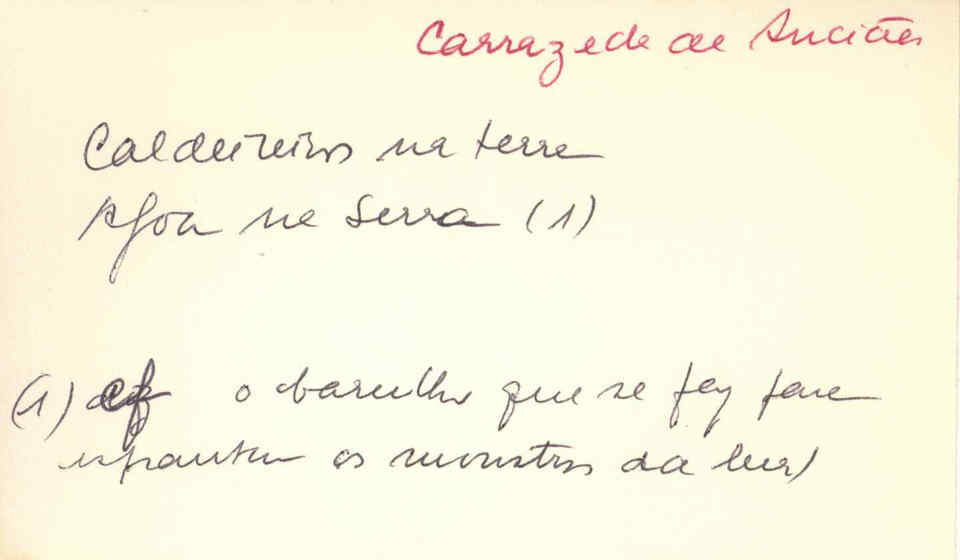 Carrazeda de Anciães
Caldeireiros na terra
Agoa na Serra (1)
(1) cf o barulho que se fez para
espantar os monstros da lua)